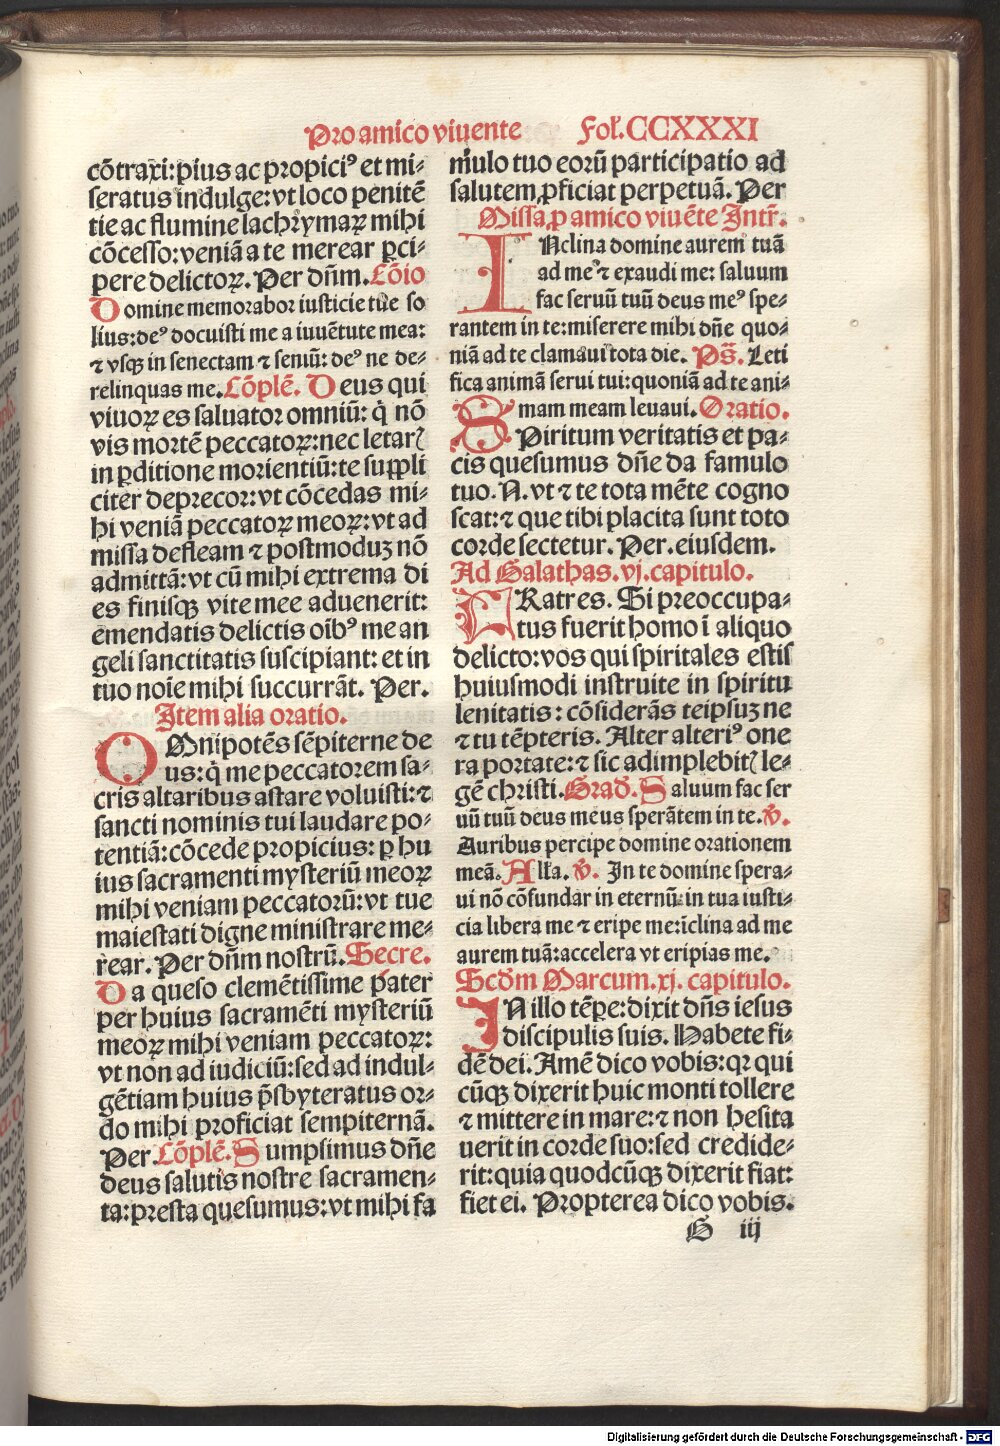 Pro amico viuente Fol.CCXXXI
cõtraxi:pius ac propiciꝰ et mi⸗
seratus indulge:vt loco penitẽ
tie ac flumine lachrymaꝝ mihi
cõcesso:veniã a te merear ꝑci⸗
pere delictoꝝ. Per dñm. Cõio
Domine memorabor iusticie tue so
lius:deꝰ docuisti me a iuuẽtute mea:
⁊ vsqꝫ in senectam ⁊ seniũ: deꝰ ne de⸗
relinquas me. Cõplẽ. Deus qui
viuoꝝ es saluator omniũ: q̃ nõ
vis mortẽ peccatoꝝ:nec letaR̃
in ꝑditione morientiũ:te suppli
citer deprecor:vt cõcedas mi⸗
hi veniã peccatoꝝ meoꝝ:vt ad
missa defleam ⁊ postmoduꝫ nõ
admittã:vt cũ mihi extrema di
es finisqꝫ vite mee aduenerit:
emendatis delictis oĩbꝰ me an
geli sanctitatis suscipiant: et in
tuo noĩe mihi succurrãt. Per.
Item alia oratio.
OMnipotẽs sẽpiterne de
us:q̃ me peccatorem sa⸗
cris altaribus astare voluisti:⁊
sancti nominis tui laudare po⸗
tentiã:cõcede propicius: ꝑ hu
ius sacramenti mysteriũ meoꝝ
mihi veniam peccatorũ:vt tue
maiestati digne ministrare me⸗
rear. Per dñm nostrũ. Secre.
Da queso clemẽtissime pater
per huius sacramẽti mysteriũ
meoꝝ mihi veniam peccatoꝝ:
vt non ad iudiciũ:sed ad indul⸗
gẽtiam huius p̃sbyteratus or⸗
do mihi proficiat sempiternã.
Per. Cõplẽ. Sumpsimus dñe
deus salutis nostre sacramen⸗
ta:presta quesumus:vt mihi fa
mulo tuo eorũ participatio ad
salutem ꝓficiat perpetuã. Per
Missa ꝓ amico viuẽte Intr̃.
INclina domine aurem tuã
ad me ⁊ exaudi me: saluum
fac seruũ tuũ deus meꝰ spe⸗
rantem in te:miserere mihi dñe quo⸗
niã ad te clamaui tota die. Ps̃. Leti
fica animã serui tui:quoniã ad te ani⸗
mam meam leuaui. Oratio.
SPiritum veritatis et pa⸗
cis quesumus dñe da famulo
tuo. N. vt ⁊ te tota mẽte cogno
scat:⁊ que tibi placita sunt toto
corde sectetur. Per. eiusdem.
Ad Galathas. vj. capitulo.
FRatres. Si preoccupa⸗
tus fuerit homo ĩ aliquo
delicto:vos qui spiritales estis
huiusmodi instruite in spiritu
lenitatis: cõsiderãs teipsuꝫ ne
⁊ tu tẽpteris. Alter alteriꝰ one
ra portate:⁊ sic adimplebit̃ le⸗
gẽ christi. Grad. Saluum fac ser
uũ tuũ deus meus sperãtem in te. ℣.
Auribus percipe domine orationem
meã. Alła. ℣. In te domine spera⸗
ui nõ cõfundar in eternũ:in tua iusti⸗
cia libera me ⁊ eripe me:ĩclina ad me
aurem tuã:accelera vt eripias me.
Scd̃m Marcum. xj. capitulo.
IN illo tẽpe:dixit dñs iesus
discipulis suis. Habete fi⸗
dẽ dei. Amẽ dico vobis:qꝛ qui
cũqꝫ dixerit huic monti tollere
⁊ mittere in mare:⁊ non hesita
uerit in corde suo:sed credide⸗
rit:quia quodcũqꝫ dixerit fiat:
fiet ei. Propterea dico vobis.
G iij
Digitalisierung gefördert durch die Deutsche Forschungsgemeinschaft - DFG